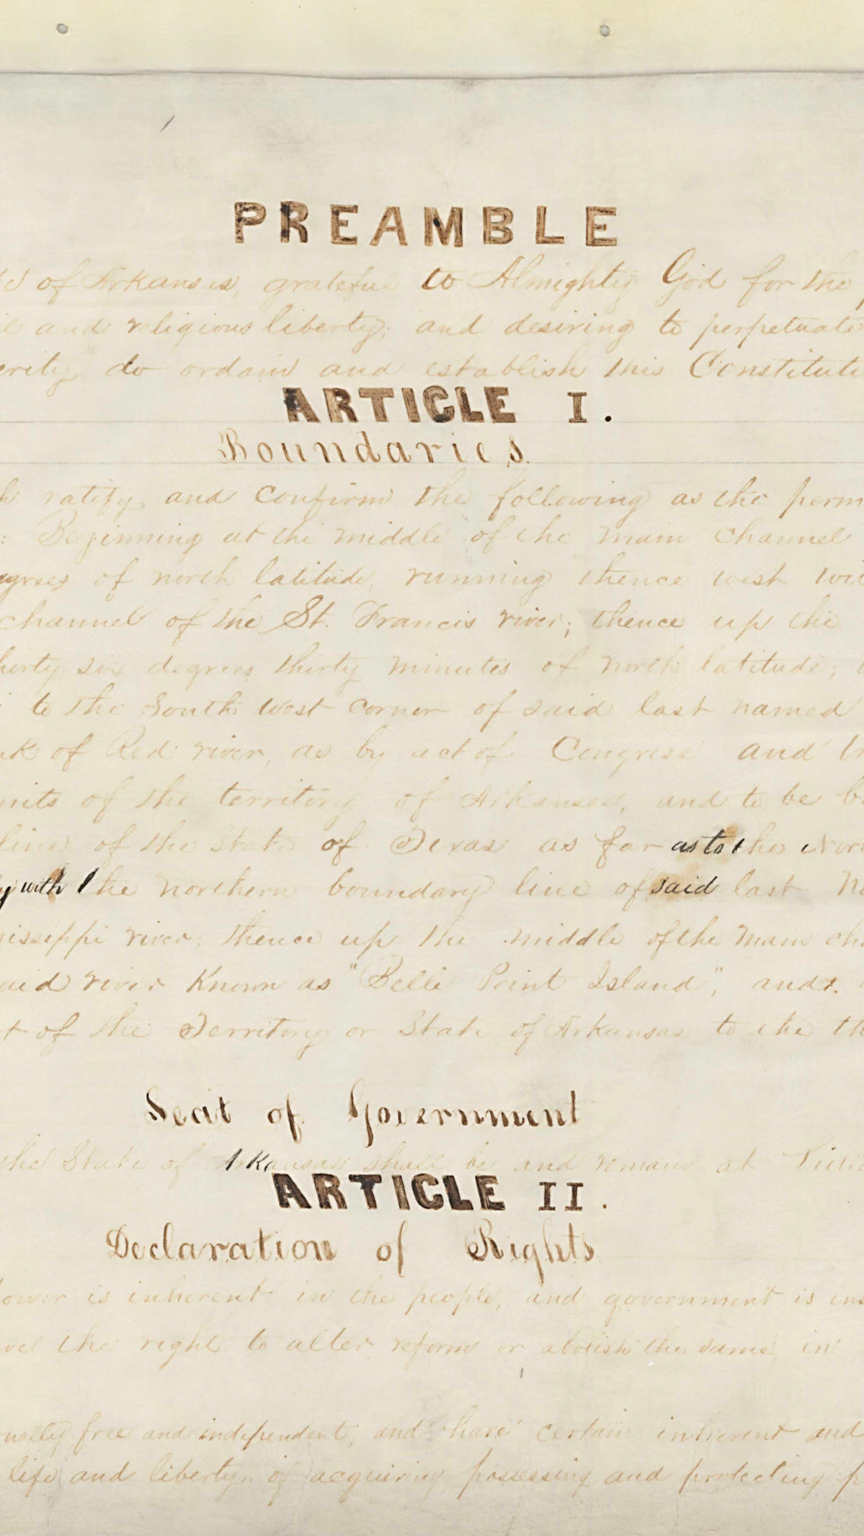 PREAMBLE
of Arkansas, grateful to Almighty God for the
and religious liberty; and desiring to perpetuate
erity do ordain and establish this Constituti
ARTICLE I.
Boundaries
h ratify and confirm the following as the perm
: Beginning at the middle of the main channel
egrees of north latitude, running thence west wit
channel of the St. Francis river; thence up the
hirty six degrees thirty minutes of north latitude;
to the South west corner of said last named
nk of Red river, as by act of Congress and tr
mits of the territory of Arkansas, and to be b
line of the State of Texas as far as to the Nor
y with the northern boundary line of said last na
sissippi river; thence up the middle of the main cha
aid river Known as "Belle Point Island",
t of the Territory or State of Arkansas to the th
Seat of Government
the State of Arkansas shall be and remain at
ARTICLE II.
Declaration of Rights
ower is inherent in the people, and government is ins
ve the right to alter, reform or abolish the same, in
ually free and independent, and have certain inherent and
life and liberty; of acquiring, possessing and protecting p